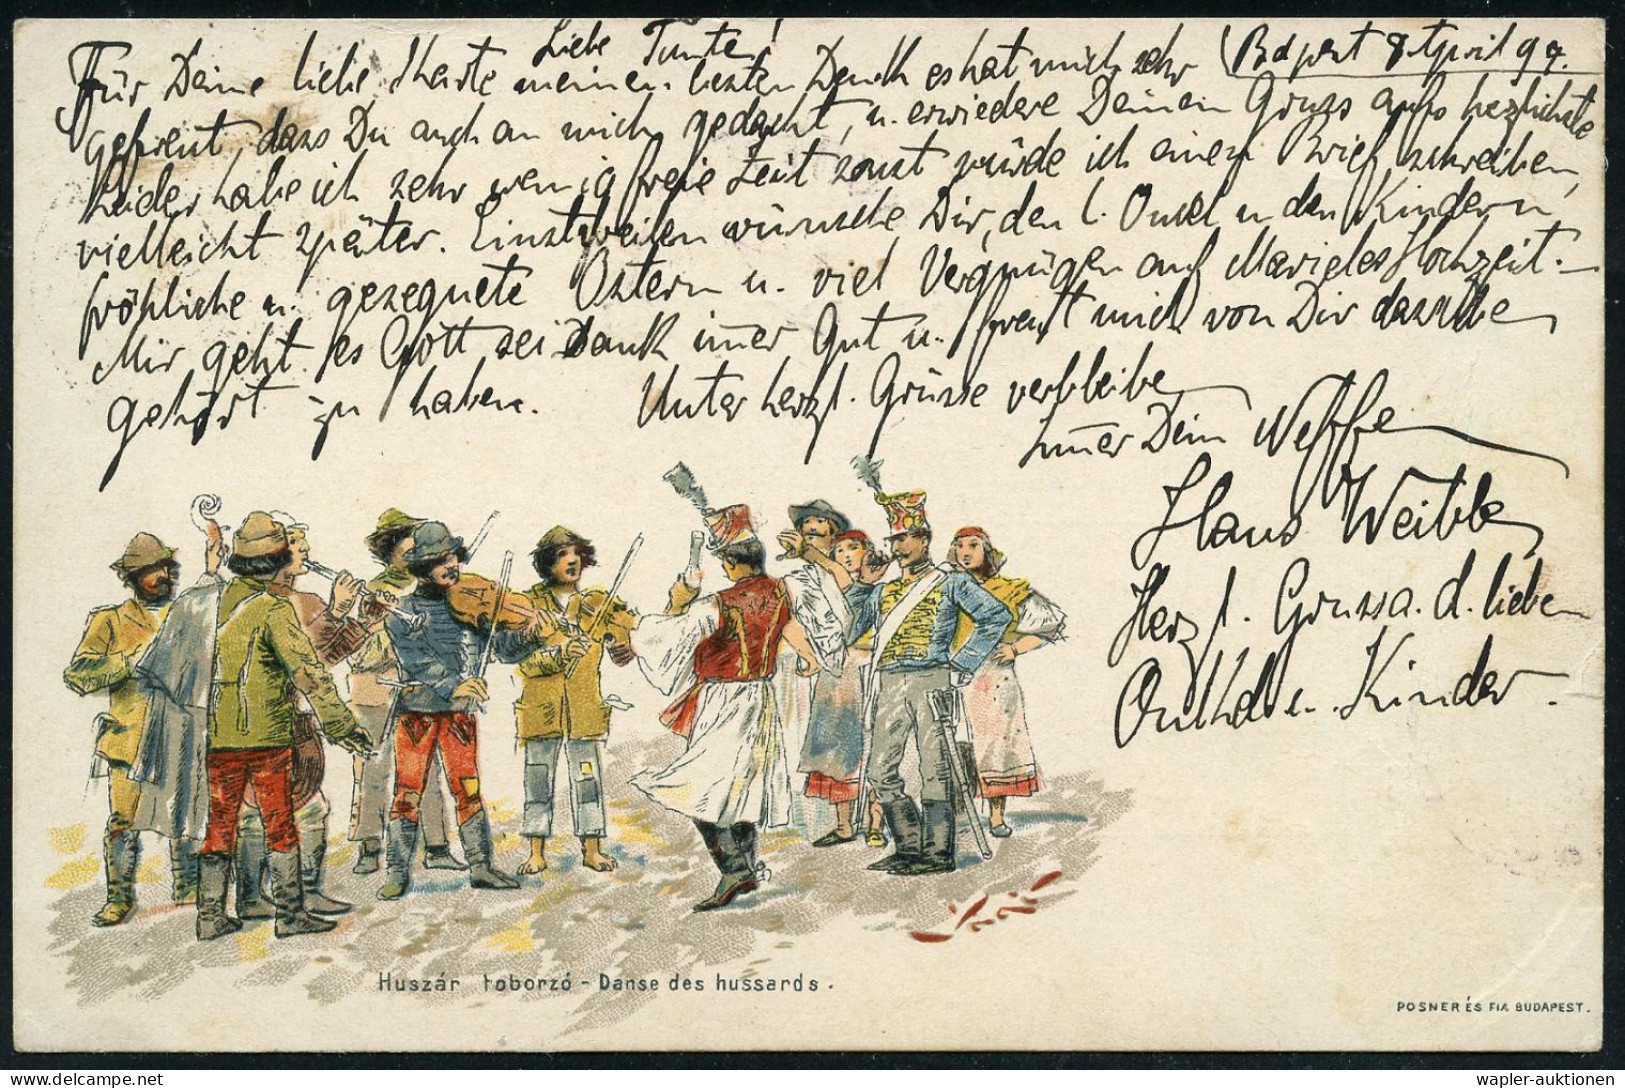 Liebe Tante!
Bdpest 8 April 99.
Für Deine liebe Karte meinen besten Dank es hat mich sehr
gefreut, dass Du auch an mich gedacht, u. erwiedere Deinen Gruss aufs herzlichste
Leider habe ich sehr wenig freie Zeit sonst würde ich einen Brief schreiben,
vielleicht später. Einstweilen wünsche Dir, den l. Onkel u den Kindern
fröhliche u. gesegnete Ostern u. viel Vergnügen auf Maries Hochzeit. –
Mir geht es Gott sei Dank im̅er Gut u. freut mich von Dir dasselbe
gehört zu haben. Unter herzl. Grüsse verbleibe
Im̅er Dein Neffe
Hans
Herzl. Gruss a. d. lieben
Onkel u. Kinder.
Huszár toborzó - Danse des hussards.
POSNER ÉS FIA BUDAPEST.
wapler-auktionen